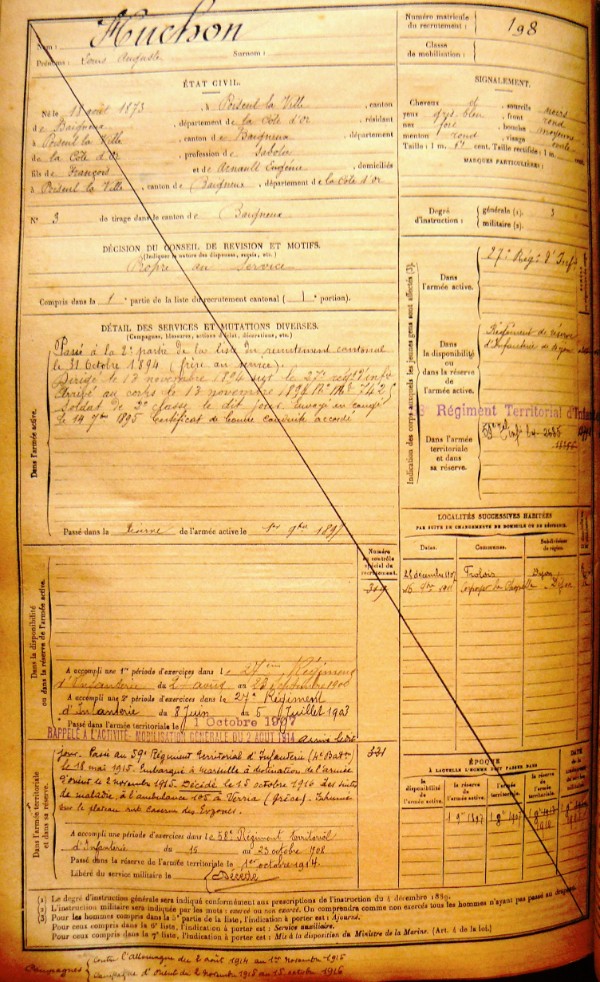 Nom : Huchon
Prénoms : Louis Auguste Surnom :
Numéro matricule du recrutement : 198
Classe de mobilisation :
ÉTAT CIVIL.
Né le 18 août 1873, à Poiseul la Ville, canton
de Baigneux, département de la Côte d'Or, résidant
à Poiseul la Ville, canton de Baigneux, département
de la Côte d'Or, profession de
fils de François et de Arnault Eugénie, domiciliés
à Poiseul la Ville, canton de Baigneux, département de la Côte d'Or
N° 3 de tirage dans le canton de Baigneux
SIGNALEMENT.
Cheveux et sourcils noirs
yeux gris bleu, front rond
nez fort, bouche moyenne
menton rond, visage ovale
Taille : 1 m. 67 cent. Taille rectifiée : 1 m. cent.
MARQUES PARTICULIÈRES :
Degré d'instruction : générale (1). 3
militaire (2).
DÉCISION DU CONSEIL DE REVISION ET MOTIFS.
(Indiquer la nature des dispenses, sursis, etc.)
Propre au service
Compris dans la 1e partie de la liste du recrutement cantonal ( portion).
DÉTAIL DES SERVICES ET MUTATIONS DIVERSES.
(Campagnes, blessures, actions d'éclat, décorations, etc.)
Passé à la 2e partie de la liste du recrutement cantonal
le 31 octobre 1894 (frère au service).
Dirigé le 13 novembre 1894 sur le 27e régt d'infie
Arrivé au corps le 13 novembre 1894
Soldat de 2e classe le dit jour. Envoyé en congé
le 19 7bre 1895 certificat de bonne conduite accordé
Dans l'armée active.
Passé dans la réserve de l'armée active le 1er 9bre 1897
Indication des corps auxquels les jeunes gens sont affectés (3).
Dans l'armée active.
27e Régt d'Infie
Dans la disponibilité ou dans la réserve de l'armée active.
Régiment de réserve
d'Infanterie de
Régiment Territorial d'Infanterie
Dans l'armée territoriale et dans sa réserve.
LOCALITÉS SUCCESSIVES HABITÉES
PAR SUITE DE CHANGEMENTS DE DOMICILE OU DE RÉSIDENCE.
Dates. Communes. Subdivisions de région.
décembre Frolois Dijon
Dijon
Numéro au contrôle spécial du recrutement.
Dans la disponibilité ou dans la réserve de l'armée active.
A accompli une 1re période d'exercices dans le 27ème Régiment
d'Infanterie du 2 août au septembre 1900
A accompli une 2e période d'exercices dans le 27e Régiment
d'Infanterie du 8 juin au 5 juillet 1903
Passé dans l'armée territoriale le 1 Octobre 1907
RAPPELÉ A L'ACTIVITÉ. MOBILISATION GÉNÉRALE DU 2 AOUT 1914 Arrivé le dit
jour. Passé au 59e Régiment Territorial d'Infanterie (4e Baton)
le 18 mai 1915. Embarqué à Marseille à destination de l'armée
d'Orient le 2 novembre 1915. Décédé le 15 octobre 1916 des suites
de maladie, à l'ambulance 105 à Verria (Grèce). Inhumé
sur le plateau aux casernes des Evzones.
331
Dans l'armée territoriale et dans sa réserve.
A accompli une période d'exercices dans le 58e Régiment territorial
d'Infanterie du 15 au 23 octobre 1908
Passé dans la réserve de l'armée territoriale le 1er octobre 1914.
Libéré du service militaire le Décédé
ÉPOQUE
À LAQUELLE L'HOMME DOIT PASSER DANS
la disponibilité de l'armée active. la réserve de l'armée active. l'armée territoriale. la réserve de l'armée territoriale.
DATE de la
(1) Le degré d'instruction générale sera indiqué conformément aux prescriptions de l'instruction du 4 décembre 1889.
(2) L'instruction militaire sera indiquée par les mots : exercé ou non exercé. On comprendra comme non exercés tous les hommes n'ayant pas passé au drapeau.
(3) Pour les hommes compris dans la 5e partie de la liste, l'indication à porter est : Ajourné.
Pour ceux compris dans la 6e liste, l'indication à porter est : Service auxiliaire.
Pour ceux compris dans la 7e liste, l'indication à porter est : Mis à la disposition du Ministre de la Marine. (Art. 4 de la loi.)
Campagnes { contre l'Allemagne du 2 août 1914 au 1er novembre 1915
Campagne d'Orient du 2 novembre 1915 au 15 octobre 1916